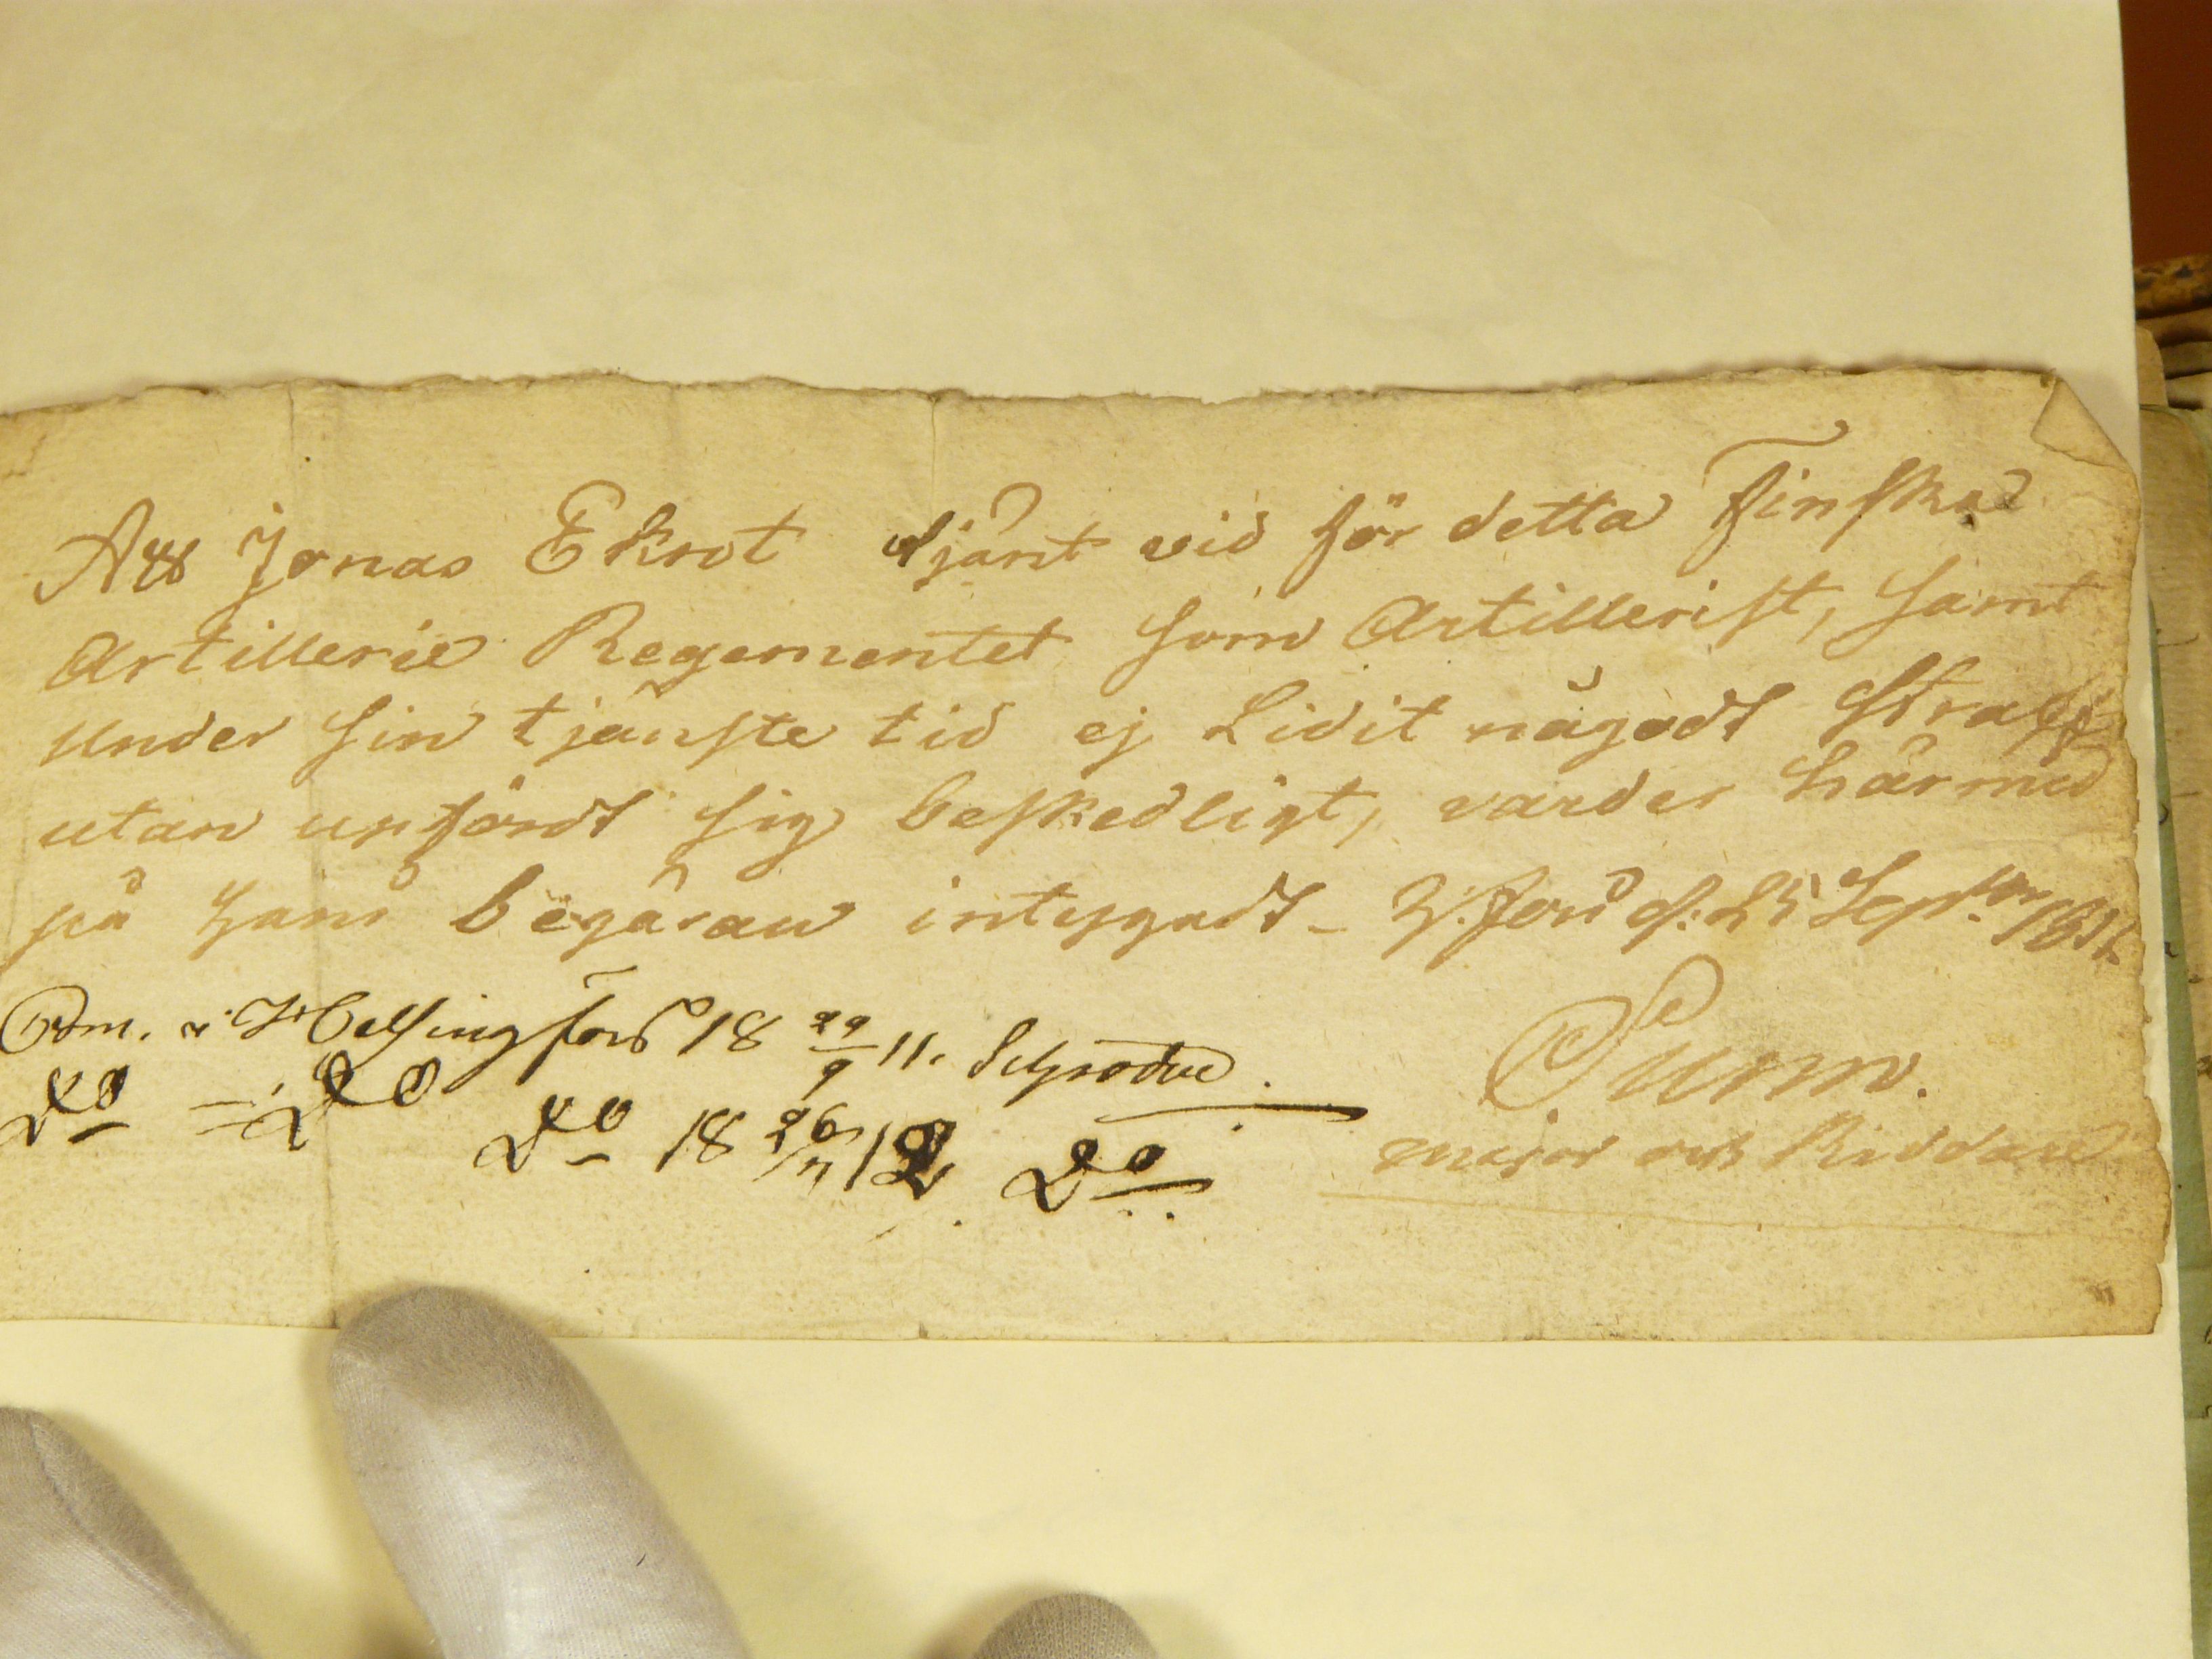 Att Jonas Eknot tjänt vid för detta Finska
Artillerie Regementet som Artillerist, samt
under sin tjänste tid ej Lidit någodt straff
utan upfördt sig beskedligt, varder härmed
på hans begäran intygadt - H:fors d: 25 Septbr 1811
Sunn.
major och Riddare
Adm. i Helsingfors 18 29/9 11. Schröder.
Do = Do Do 18 26/11 12 Do